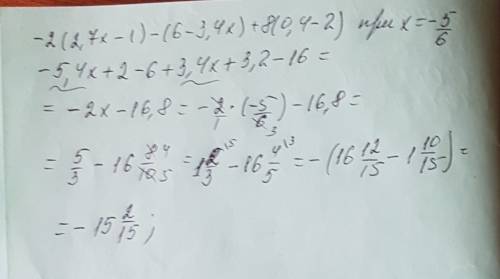 -2(2,7x-1)-(6-3,4x)+8(0,4-2) при x=-5/6
-5,4x+2-6+3,4x+3,2-16=
= -2x-16,8 = -2/1 · (-5/6)-16,8=
= 5/3 - 16 8/10 = 1 2/3 - 16 4/5 = -(16 12/15 - 1 10/15)=
= -15 2/15;